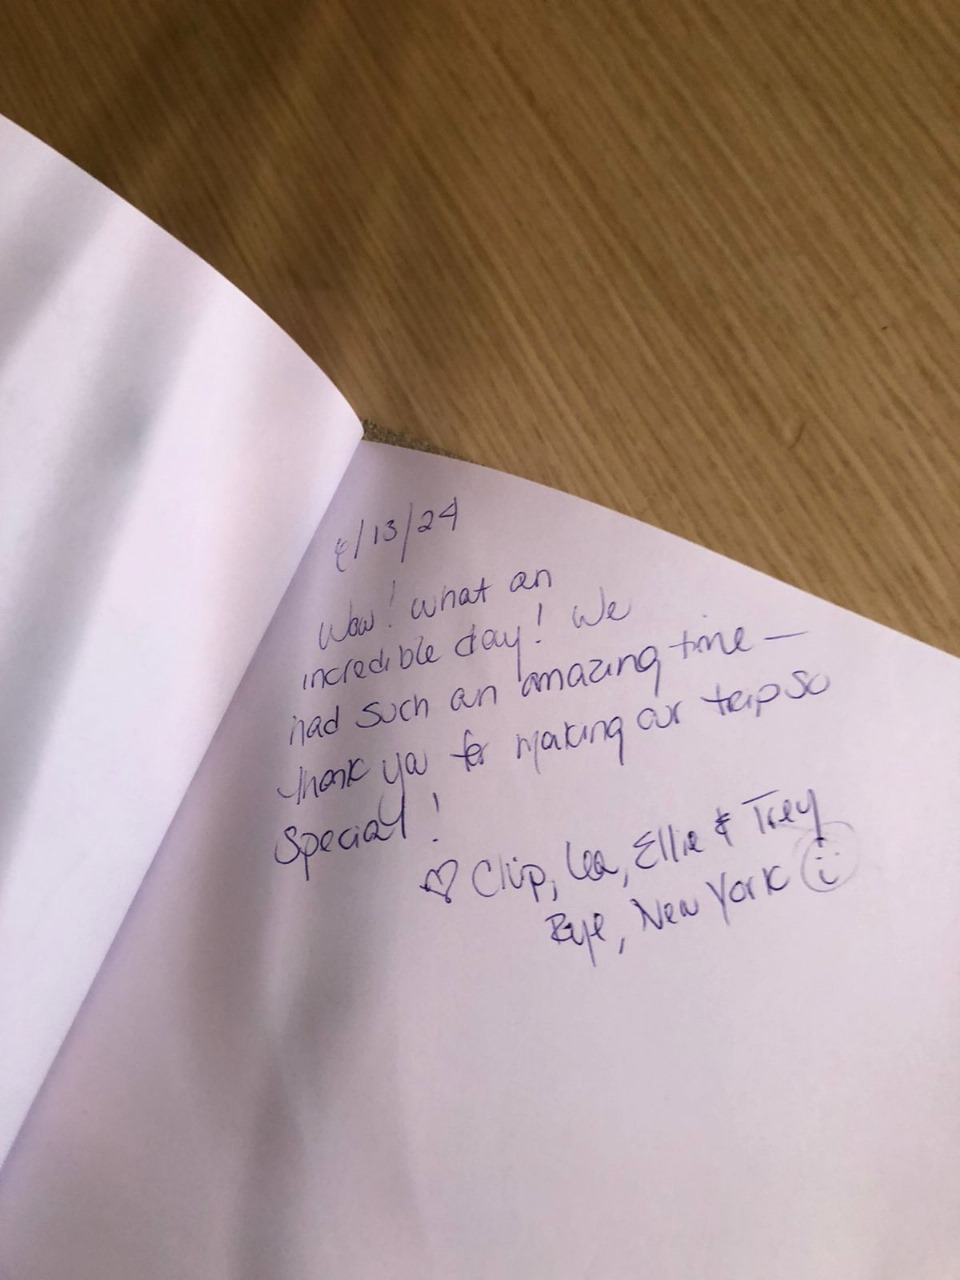 /13/24
Wow! What an
incredible day! We
had such an amazing time —
thank you for making our trip so
special!
♡ Chip, Lea, Ellie & Trey
Rye, New York ☺